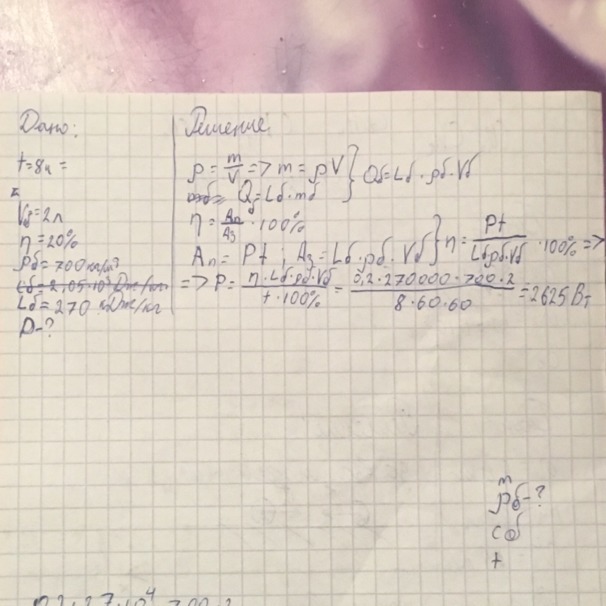 Дано:
t=8ч=
Vб=2л
η=20%
ρб=700кг/м³
Lб=2,05·10³Дж/кг
Lб=270 кДж/кг
P-?
Решение:
ρ=m/V=>m=ρV} Qб=Lб·ρб·Vб
Qб=Lб·mб
η=Aп/Aз·100%
Aп=Pt; Aз=Lб·ρб·Vб} η=Pt/LбρбVб·100%=>
=>P=η·Lб·ρб·Vб/t·100%=0,2·270000·700·2/8·60·60=2625Вт
m
ρб-?
cб
t